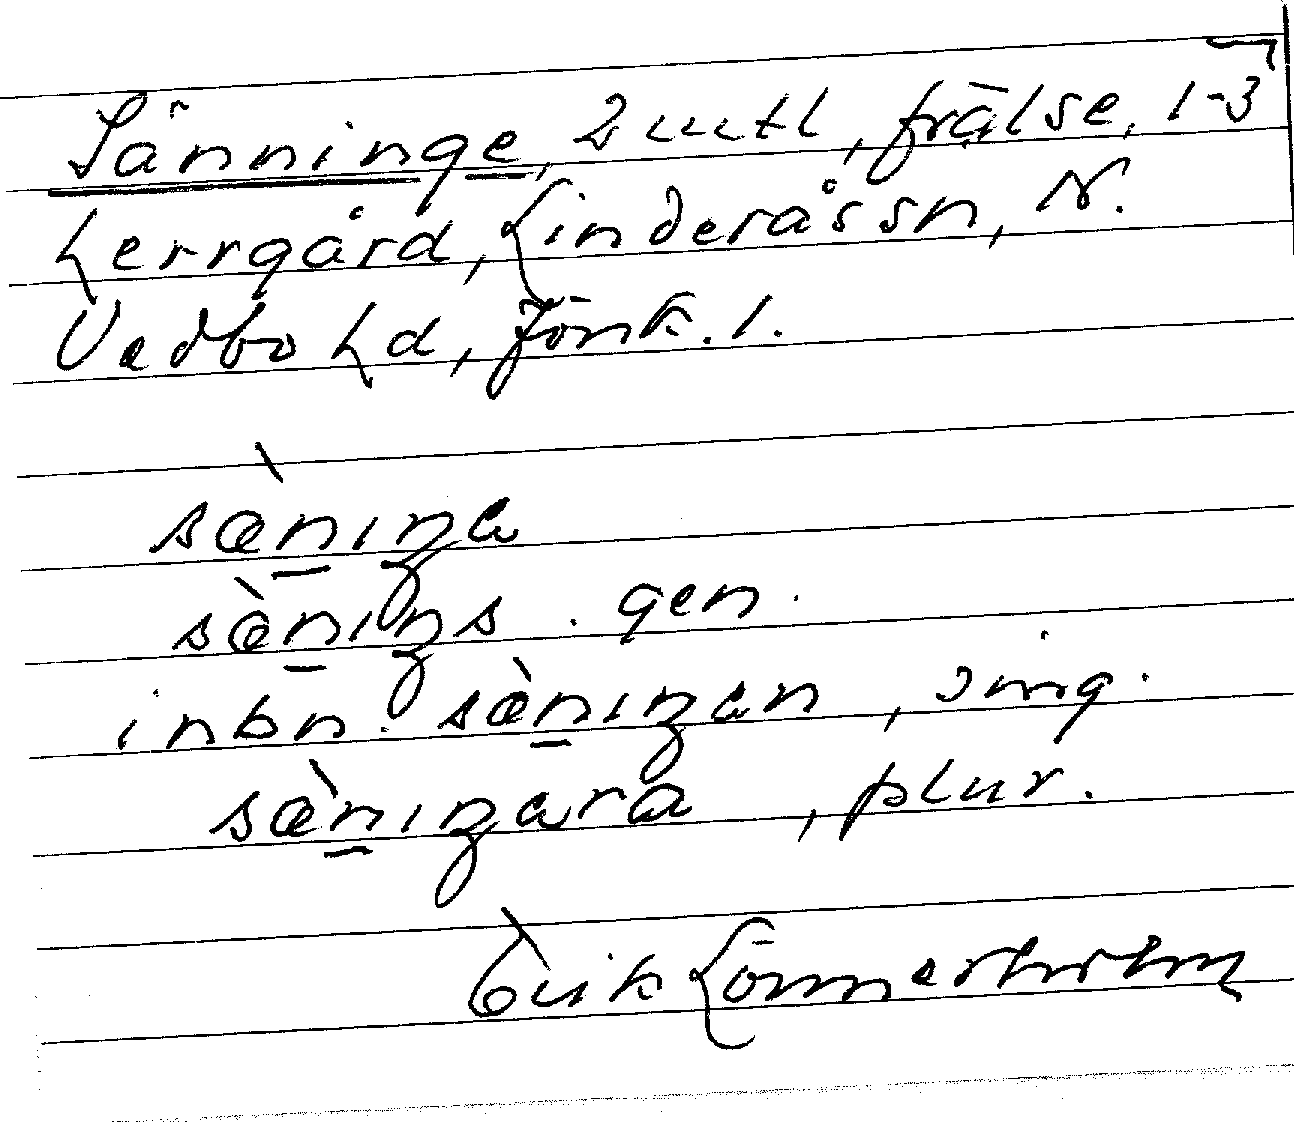 Sänninge, 2 mtl, frälse, 1-3
herrgård, Linderåssn, N.
Vedbo hd, Jönk. l.
sæ̀niŋa
sæ̀niŋs. gen.
inbn. sæ̀niŋan, sing.
sæ̀niŋara, plur.
Erik Lönnerholm